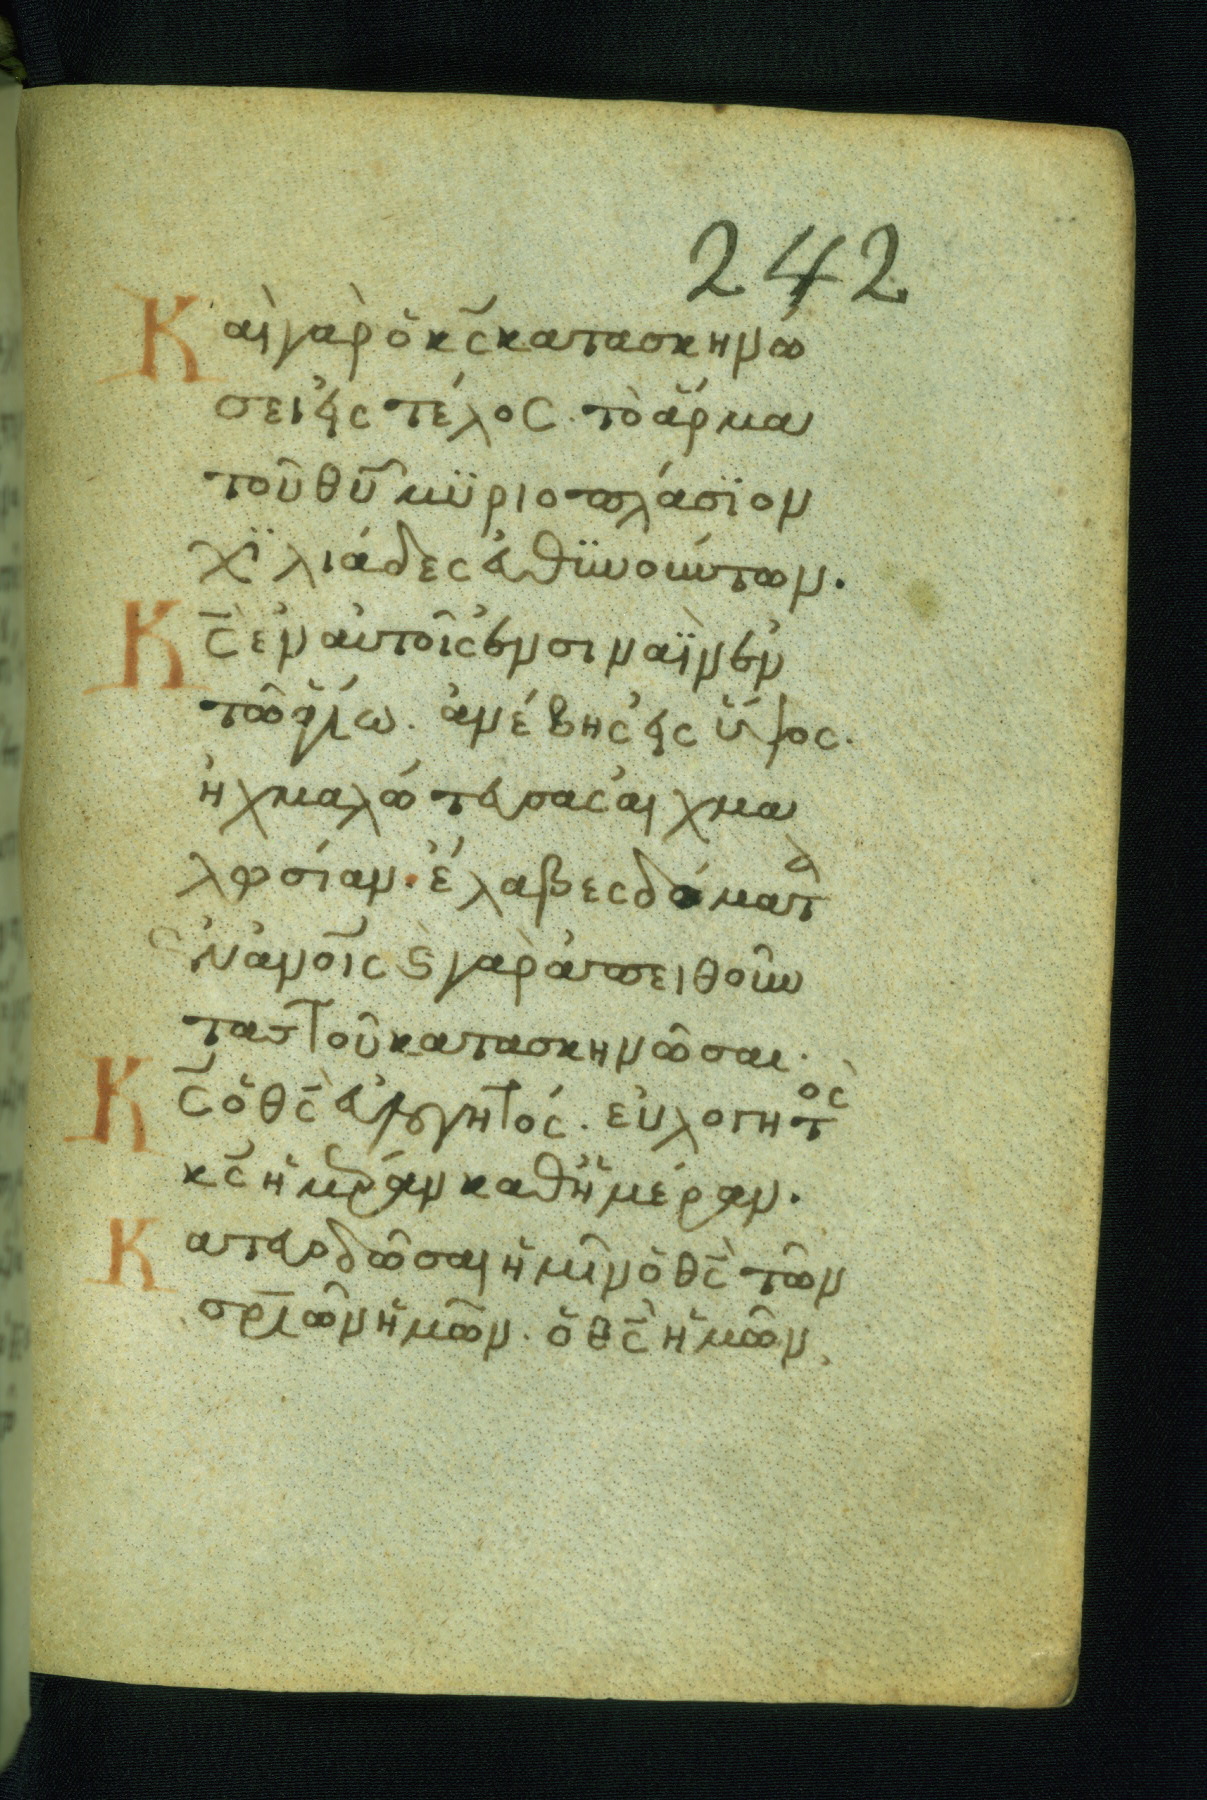 242
Καὶ γὰρ ὁ κ̅ς̅ κατασκηνώ
σει εἰς τέλος. τὸ ἅρμα
τοῦ θ̅υ̅ μϋριοπλάσϊον
χϊλιάδες εὐθϋνούντων.
Κ̅ς̅ ἐν αὐτοῖς ἐν σιναῒ ἐν
τῶ ἁγίω. ἀνέβης εἰς ὕψος.
ἠχμαλώτευσας αἰχμα
λωσίαν. ἔλαβες δόματα
ἐν ἀνοις κ̀ γὰρ ἀπειθοῦν
τας τοῦ κατασκηνῶσαι.
Κ̅ς̅ ὁ θ̅ς̅ εὐλογητός. εὐλογητὸς
κ̅ς̅ ἡμέραν καθ ἡμέραν.
Κατευοδῶσαι ἡμῖν ὁ θ̅ς̅ τῶν
σριῶν ἡμῶν. ὁ θ̅ς̅ ἡμῶν